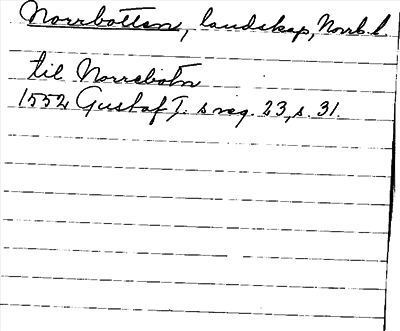 Norrbotten, landskap, Norrb. l.
til Norrebotn
1552 Gustaf I:s reg. 23, s. 31.